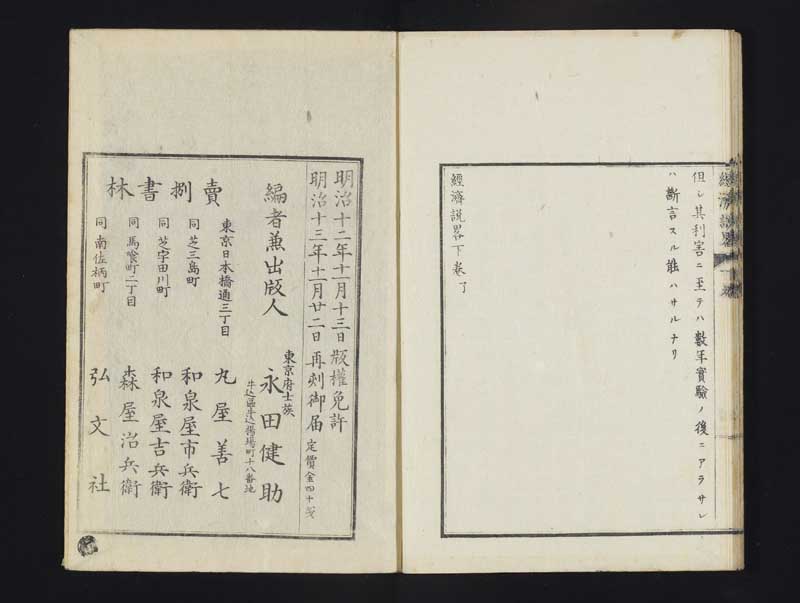 但シ其利害ニ至テハ數年實驗ノ後ニアラサレ
ハ斷言スル能ハサルナリ
經濟説畧下巻了
明治十二年十一月十三日版權免許
明治十三年十一月廿二日再刻御届
定價金四十戔
編者兼出版人
東京府士族
永田健助
牛込區牛込揚場町十八番地
賣捌書林
東京日本橋通三丁目 丸屋善七
同 芝三島町 和泉屋市兵衛
同 芝宇田川町 和泉屋吉兵衛
同 馬喰町二丁目 森屋治兵衛
同 南佐柄町 弘文社